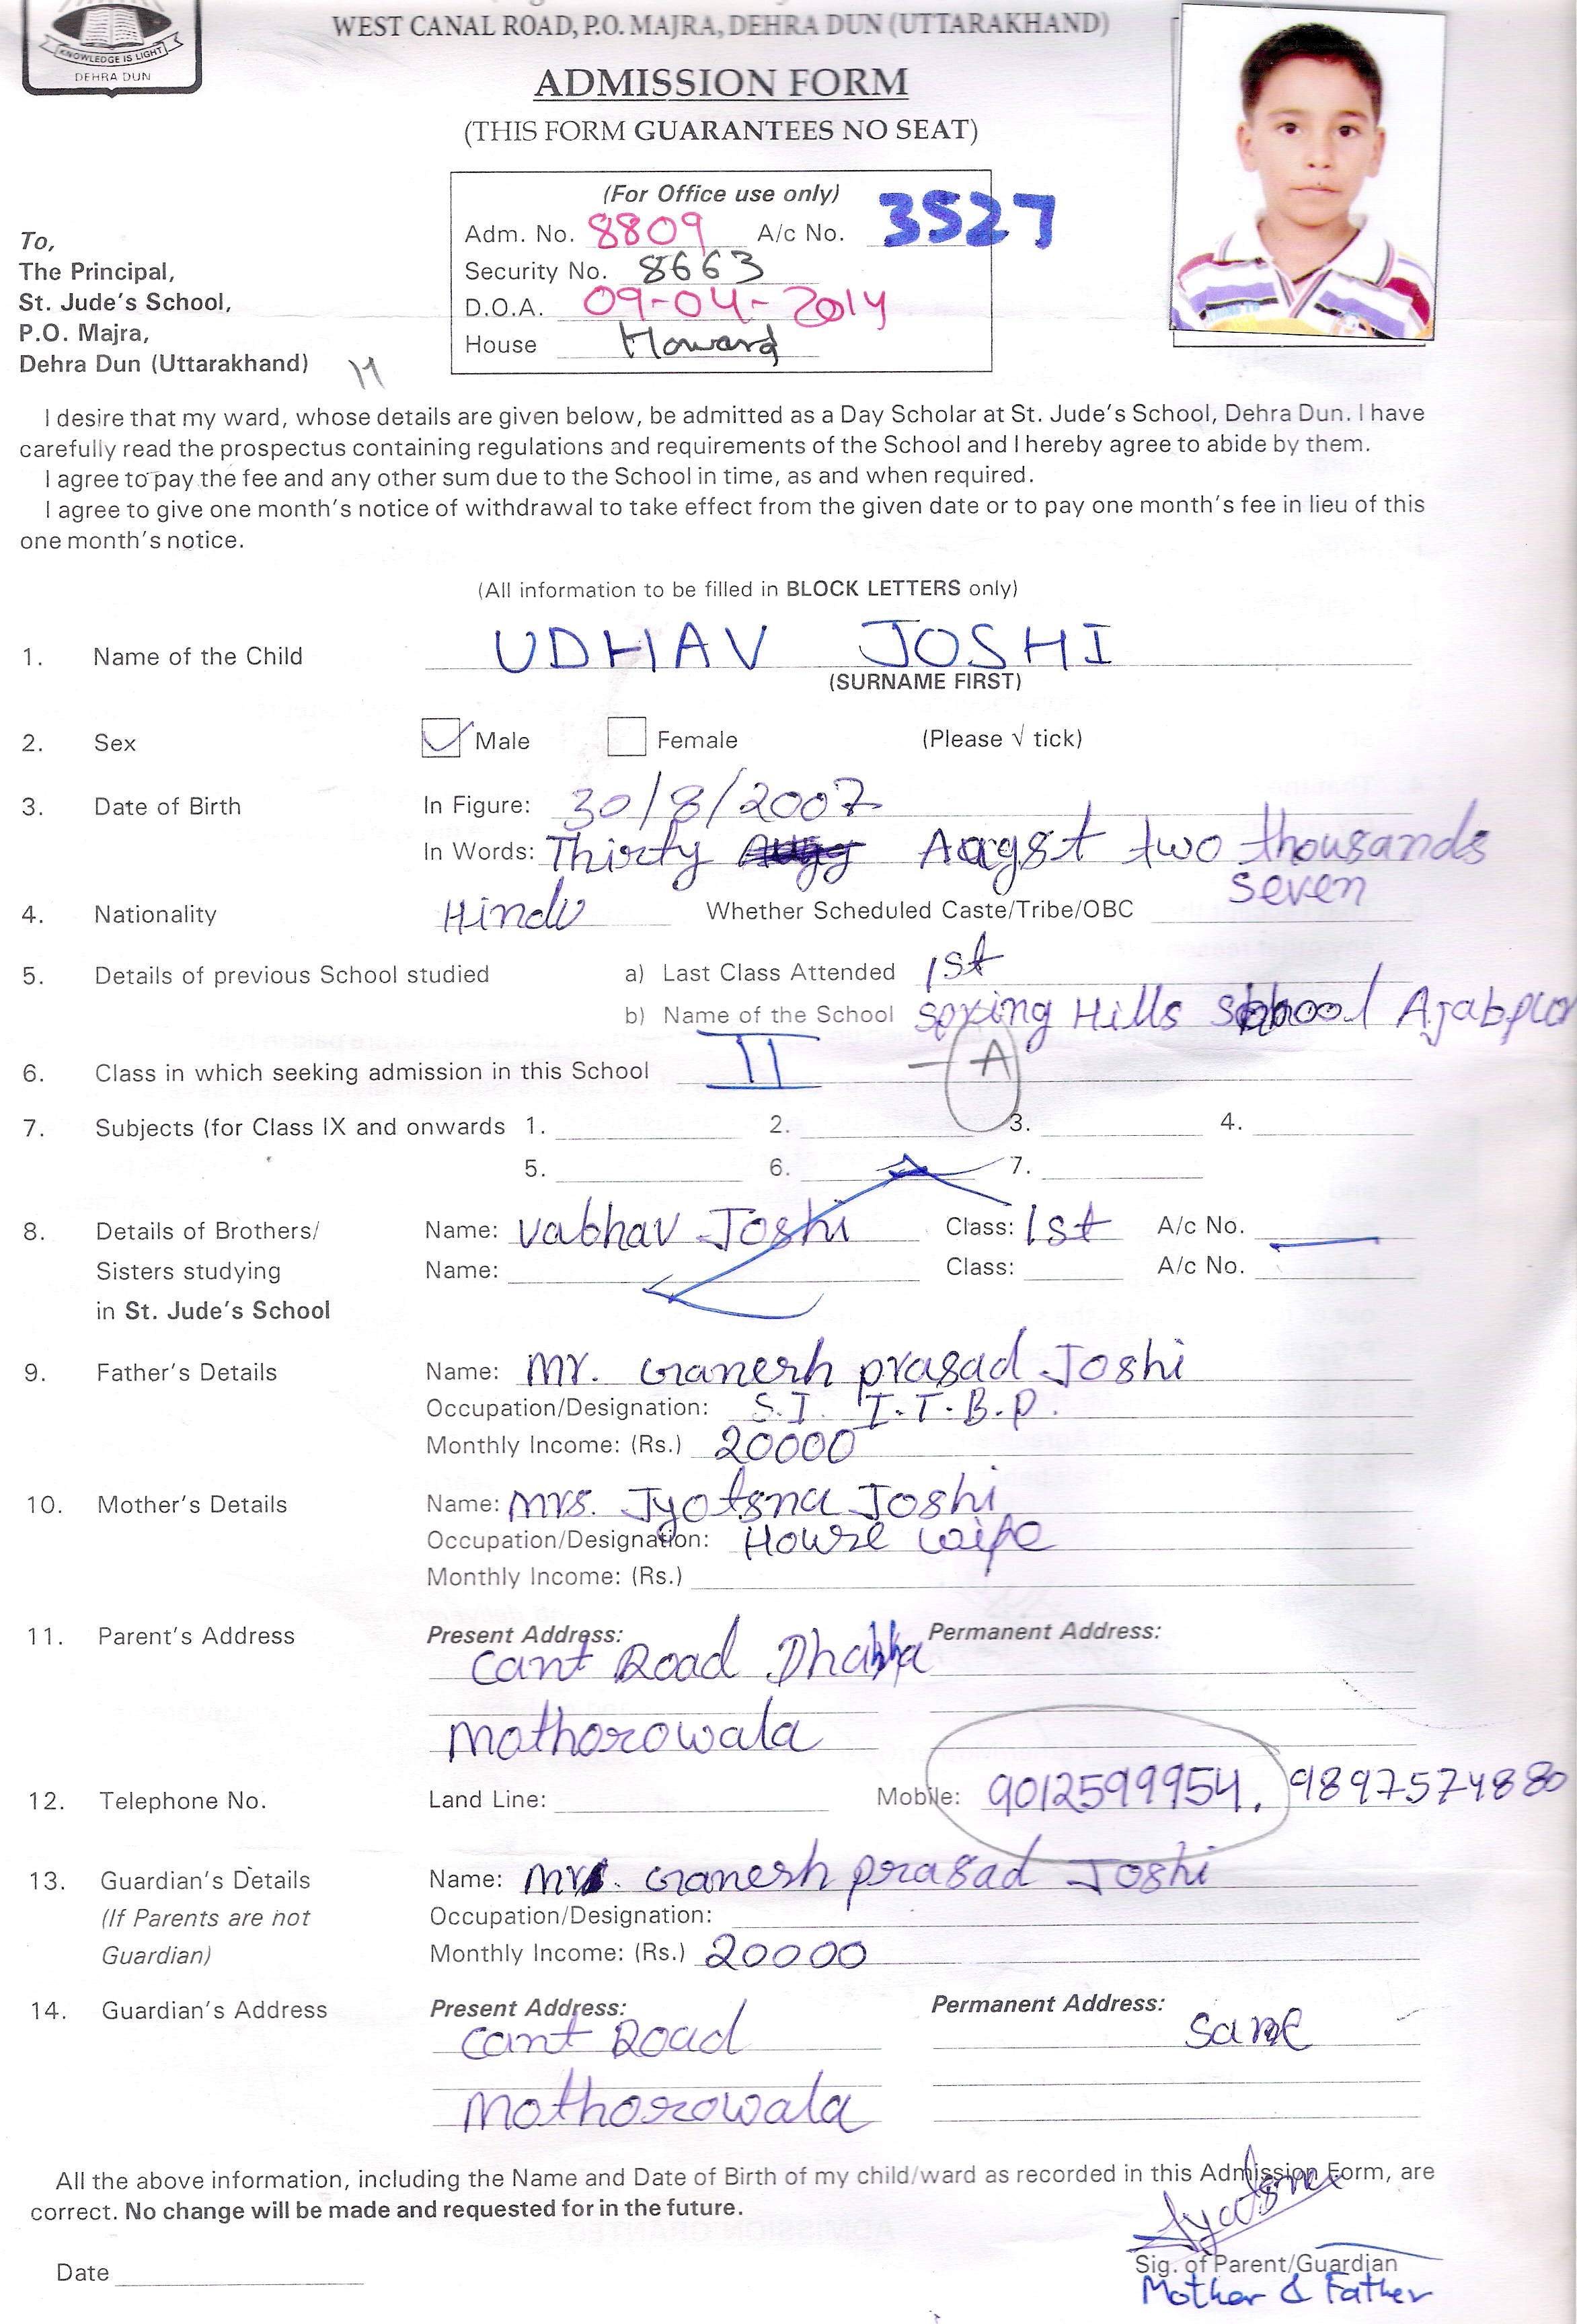 KNOWLEDGE IS LIGHT
DEHRA DUN
WEST CANAL ROAD, P.O. MAJRA, DEHRA DUN (UTTARAKHAND)
ADMISSION FORM
(THIS FORM GUARANTEES NO SEAT)
(For Office use only)
Adm. No. 8809 A/c No. 3527
Security No. 8663
D.O.A. 09-04-2014
House Howard
To,
The Principal,
St. Jude's School,
P.O. Majra,
Dehra Dun (Uttarakhand)
I desire that my ward, whose details are given below, be admitted as a Day Scholar at St. Jude's School, Dehra Dun. I have
carefully read the prospectus containing regulations and requirements of the School and I hereby agree to abide by them.
I agree to pay the fee and any other sum due to the School in time, as and when required.
I agree to give one month's notice of withdrawal to take effect from the given date or to pay one month's fee in lieu of this
one month's notice.
(All information to be filled in BLOCK LETTERS only)
1. Name of the Child UDHAV JOSHI
(SURNAME FIRST)
2. Sex Male Female (Please √ tick)
3. Date of Birth In Figure: 30/8/2007
In Words: Thirty Aaugst two thousands
seven
4. Nationality Hindu Whether Scheduled Caste/Tribe/OBC
5. Details of previous School studied a) Last Class Attended 1st
b) Name of the School Spring Hills School Ajabpur
6. Class in which seeking admission in this School II - A
7. Subjects (for Class IX and onwards 1. 2. 3. 4.
5. 6. 7.
8. Details of Brothers/ Name: Vabhav Joshi Class: 1st A/c No.
Sisters studying Name: Class: A/c No.
in St. Jude's School
9. Father's Details Name: Mr. Ganesh prasad Joshi
Occupation/Designation: S.I. I.T.B.P.
Monthly Income: (Rs.) 20000
10. Mother's Details Name: Mrs. Jyotsna Joshi
Occupation/Designation: House Wife
Monthly Income: (Rs.)
11. Parent's Address Present Address: Permanent Address:
Cant Road
Mothorowala
12. Telephone No. Land Line: Mobile: 9012599954, 9897574880
13. Guardian's Details Name: Mr. Ganesh prasad Joshi
(If Parents are not Occupation/Designation:
Guardian) Monthly Income: (Rs.) 20000
14. Guardian's Address Present Address: Permanent Address:
Cant Road Same
Mothorowala
All the above information, including the Name and Date of Birth of my child/ward as recorded in this Admission Form, are
correct. No change will be made and requested for in the future.
Jyotsna
Date Sig. of Parent/Guardian
Mother & Father